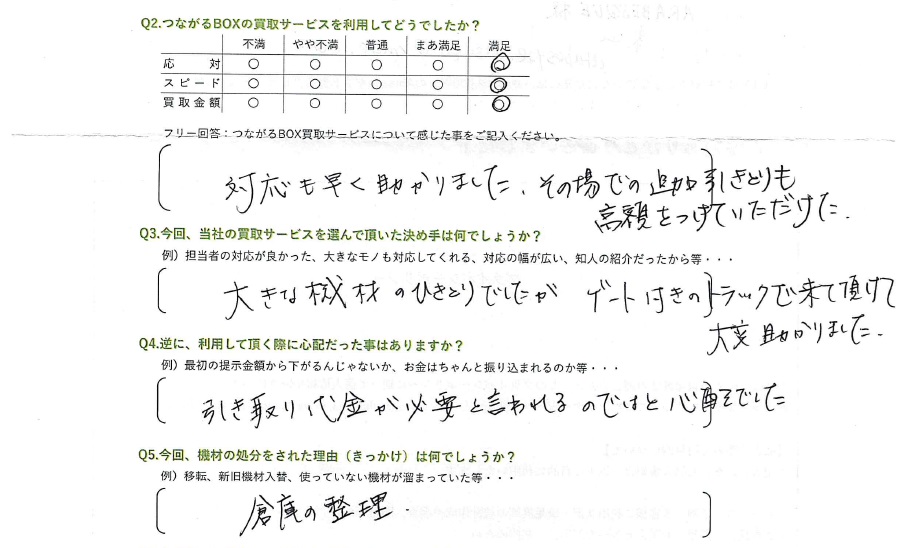 Q2.つながるBOXの買取サービスを利用してどうでしたか？
不満 やや不満 普通 まあ満足 満足
応対 ○ ○ ○ ○ ◎
スピード ○ ○ ○ ○ ◎
買取金額 ○ ○ ○ ○ ◎
フリー回答：つながるBOX買取サービスについて感じた事をご記入ください。
対応も早く助かりました、その場での追加引きとりも
高額をつけていただけた.
Q3.今回、当社の買取サービスを選んで頂いた決め手は何でしょうか？
例）担当者の対応が良かった、大きなモノも対応してくれる、対応の幅が広い、知人の紹介だったから等・・・
大きな機材のひきとりでしたが ゲート付きのトラックで来て頂けて
大変助かりました.
Q4.逆に、利用して頂く際に心配だった事はありますか？
例）最初の提示金額から下がるんじゃないか、お金はちゃんと振り込まれるのか等・・・
引き取り代金が必要と言われるのではと心配でした
Q5.今回、機材の処分をされた理由（きっかけ）は何でしょうか？
例）移転、新旧機材入替、使っていない機材が溜まっていた等・・・
倉庫の整理.